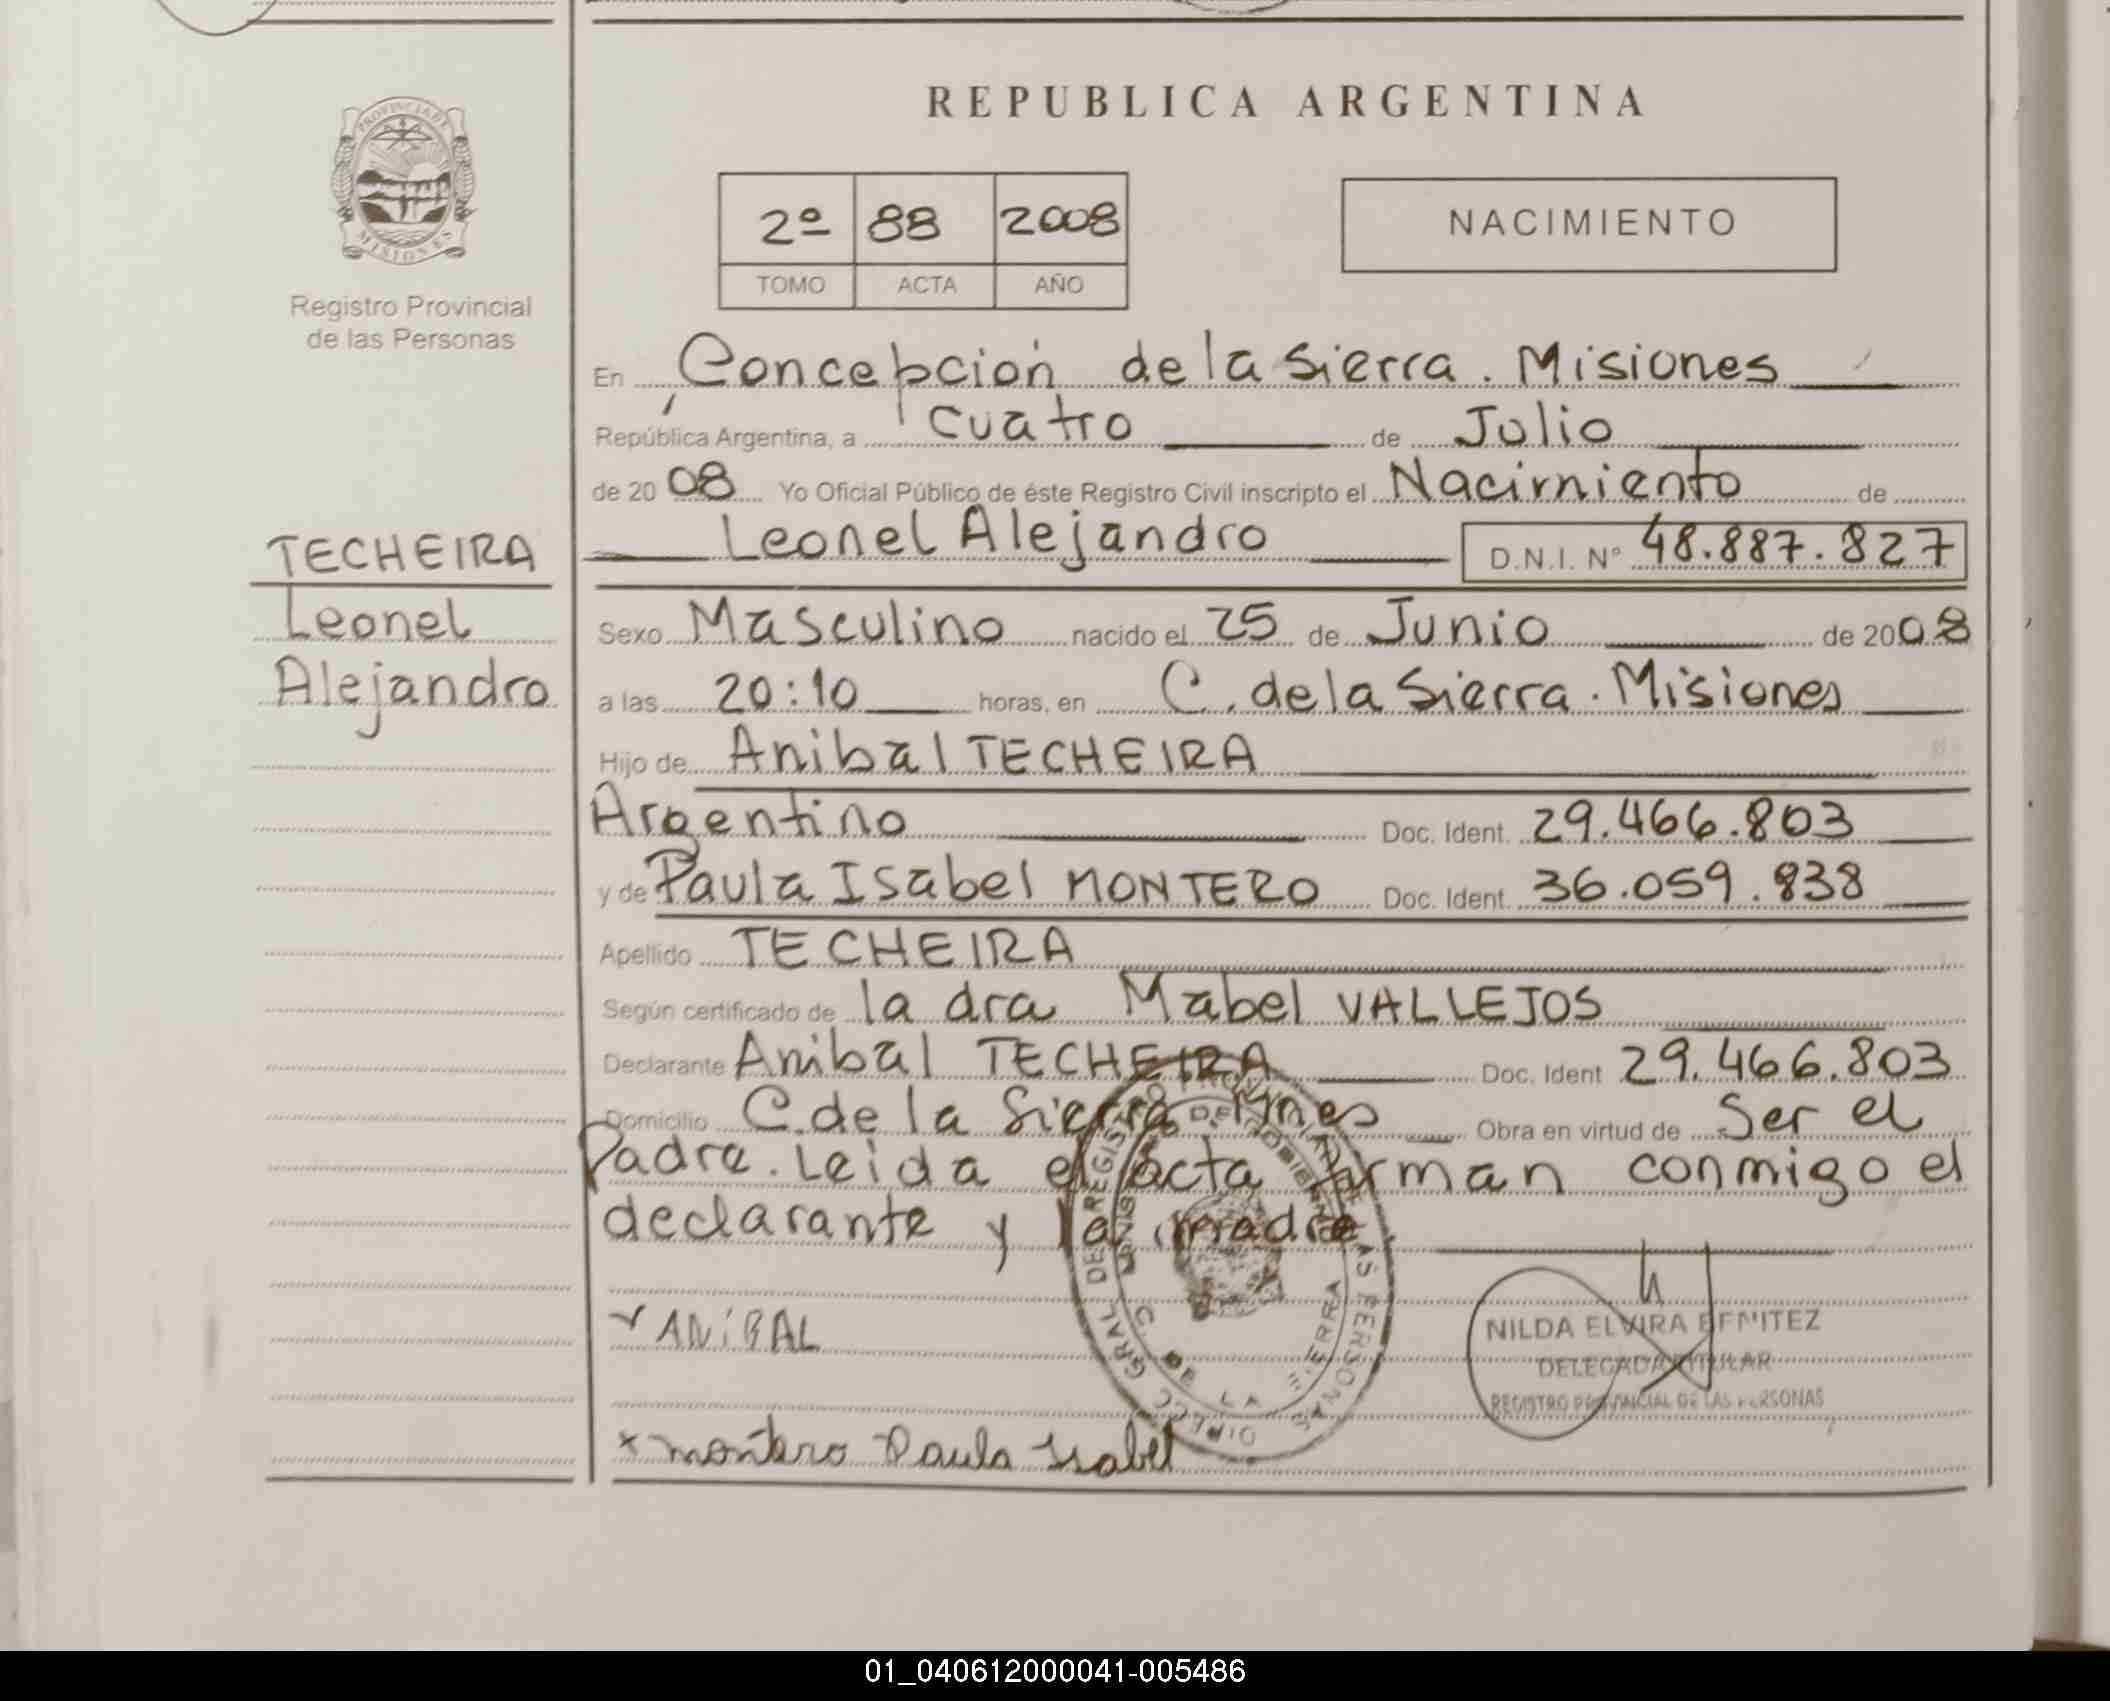 REPUBLICA ARGENTINA
PROVINCIA DE MISIONES
Registro Provincial
de las Personas
2º 88 2008
TOMO ACTA AÑO
NACIMIENTO
En Concepción de la Sierra. Misiones
República Argentina, a cuatro de Julio
de 2008 Yo Oficial Público de éste Registro Civil inscripto el Nacimiento de
Leonel Alejandro D.N.I. Nº 48.887.827
TECHEIRA
Leonel
Alejandro
Sexo Masculino nacido el 25 de Junio de 2008
a las 20:10 horas, en C. de la Sierra. Misiones
Hijo de Anibal TECHEIRA
Argentino Doc. Ident. 29.466.803
y de Paula Isabel MONTERO Doc. Ident. 36.059.838
Apellido TECHEIRA
Según certificado de la dra Mabel VALLEJOS
Declarante Anibal TECHEIRA Doc. Ident 29.466.803
Domicilio C. de la Sierra Mnes Obra en virtud de Ser el
Padre. Leida el acta firman conmigo el
declarante y la madre.
ANiBAL
montero Paula Isabel
DIRECC GRAL DE REGISTRO PROVINCIAL DE LAS PERSONAS
C. DE LA SIERRA
NILDA ELVIRA BENITEZ
DELEGADA TITULAR
REGISTRO PROVINCIAL DE LAS PERSONAS
01_040612000041-005486